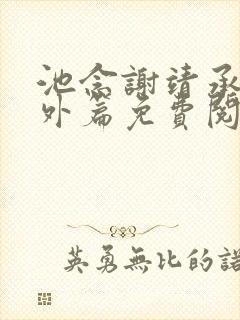 池念謝靖承
外篇免費閱
英勇無比的諾